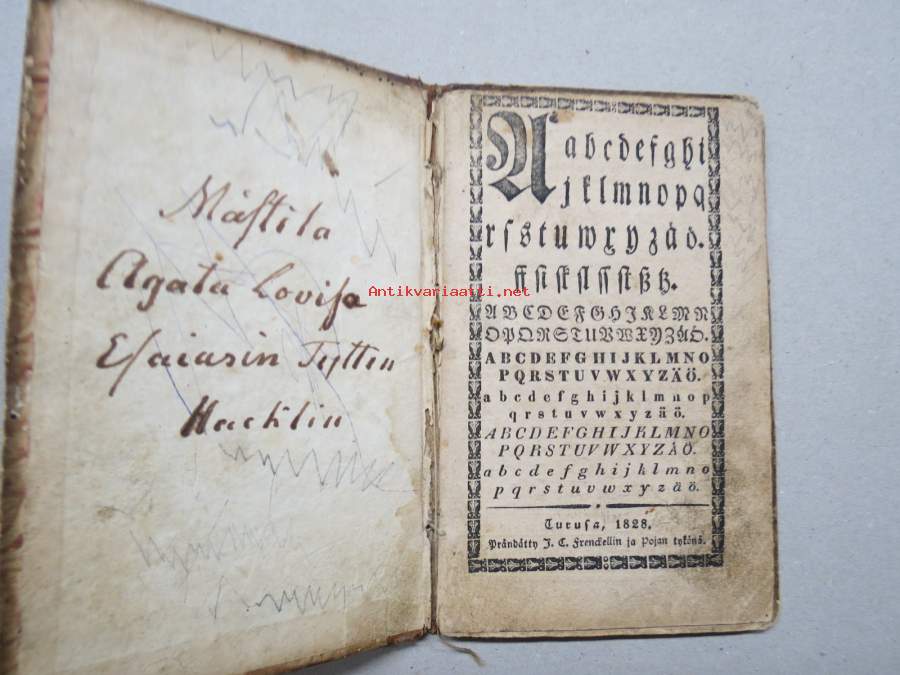 Måſtila
Agata Loviſa
Eſaiasin Tytten
Hacklin
Antikvariaatti.net
A a b c d e f g h i
j k l m n o p q
r ſ s t u w x y z å ö.
ff ſi ſk ſl ſſ ſt ß tz.
A B C D E F G H I K L M N
O P Q R S T U V W X Y Z Ä Ö.
A B C D E F G H I J K L M N O
P Q R S T U V W X Y Z Ä Ö.
a b c d e f g h i j k l m n o p
q r s t u v w x y z ä ö.
A B C D E F G H I J K L M N O
P Q R S T U V W X Y Z Ä Ö.
a b c d e f g h i j k l m n o
p q r s t u v w x y z ä ö.
Turuſa, 1828,
Prändätty J. C. Frenckellin ja Pojan tykönä.